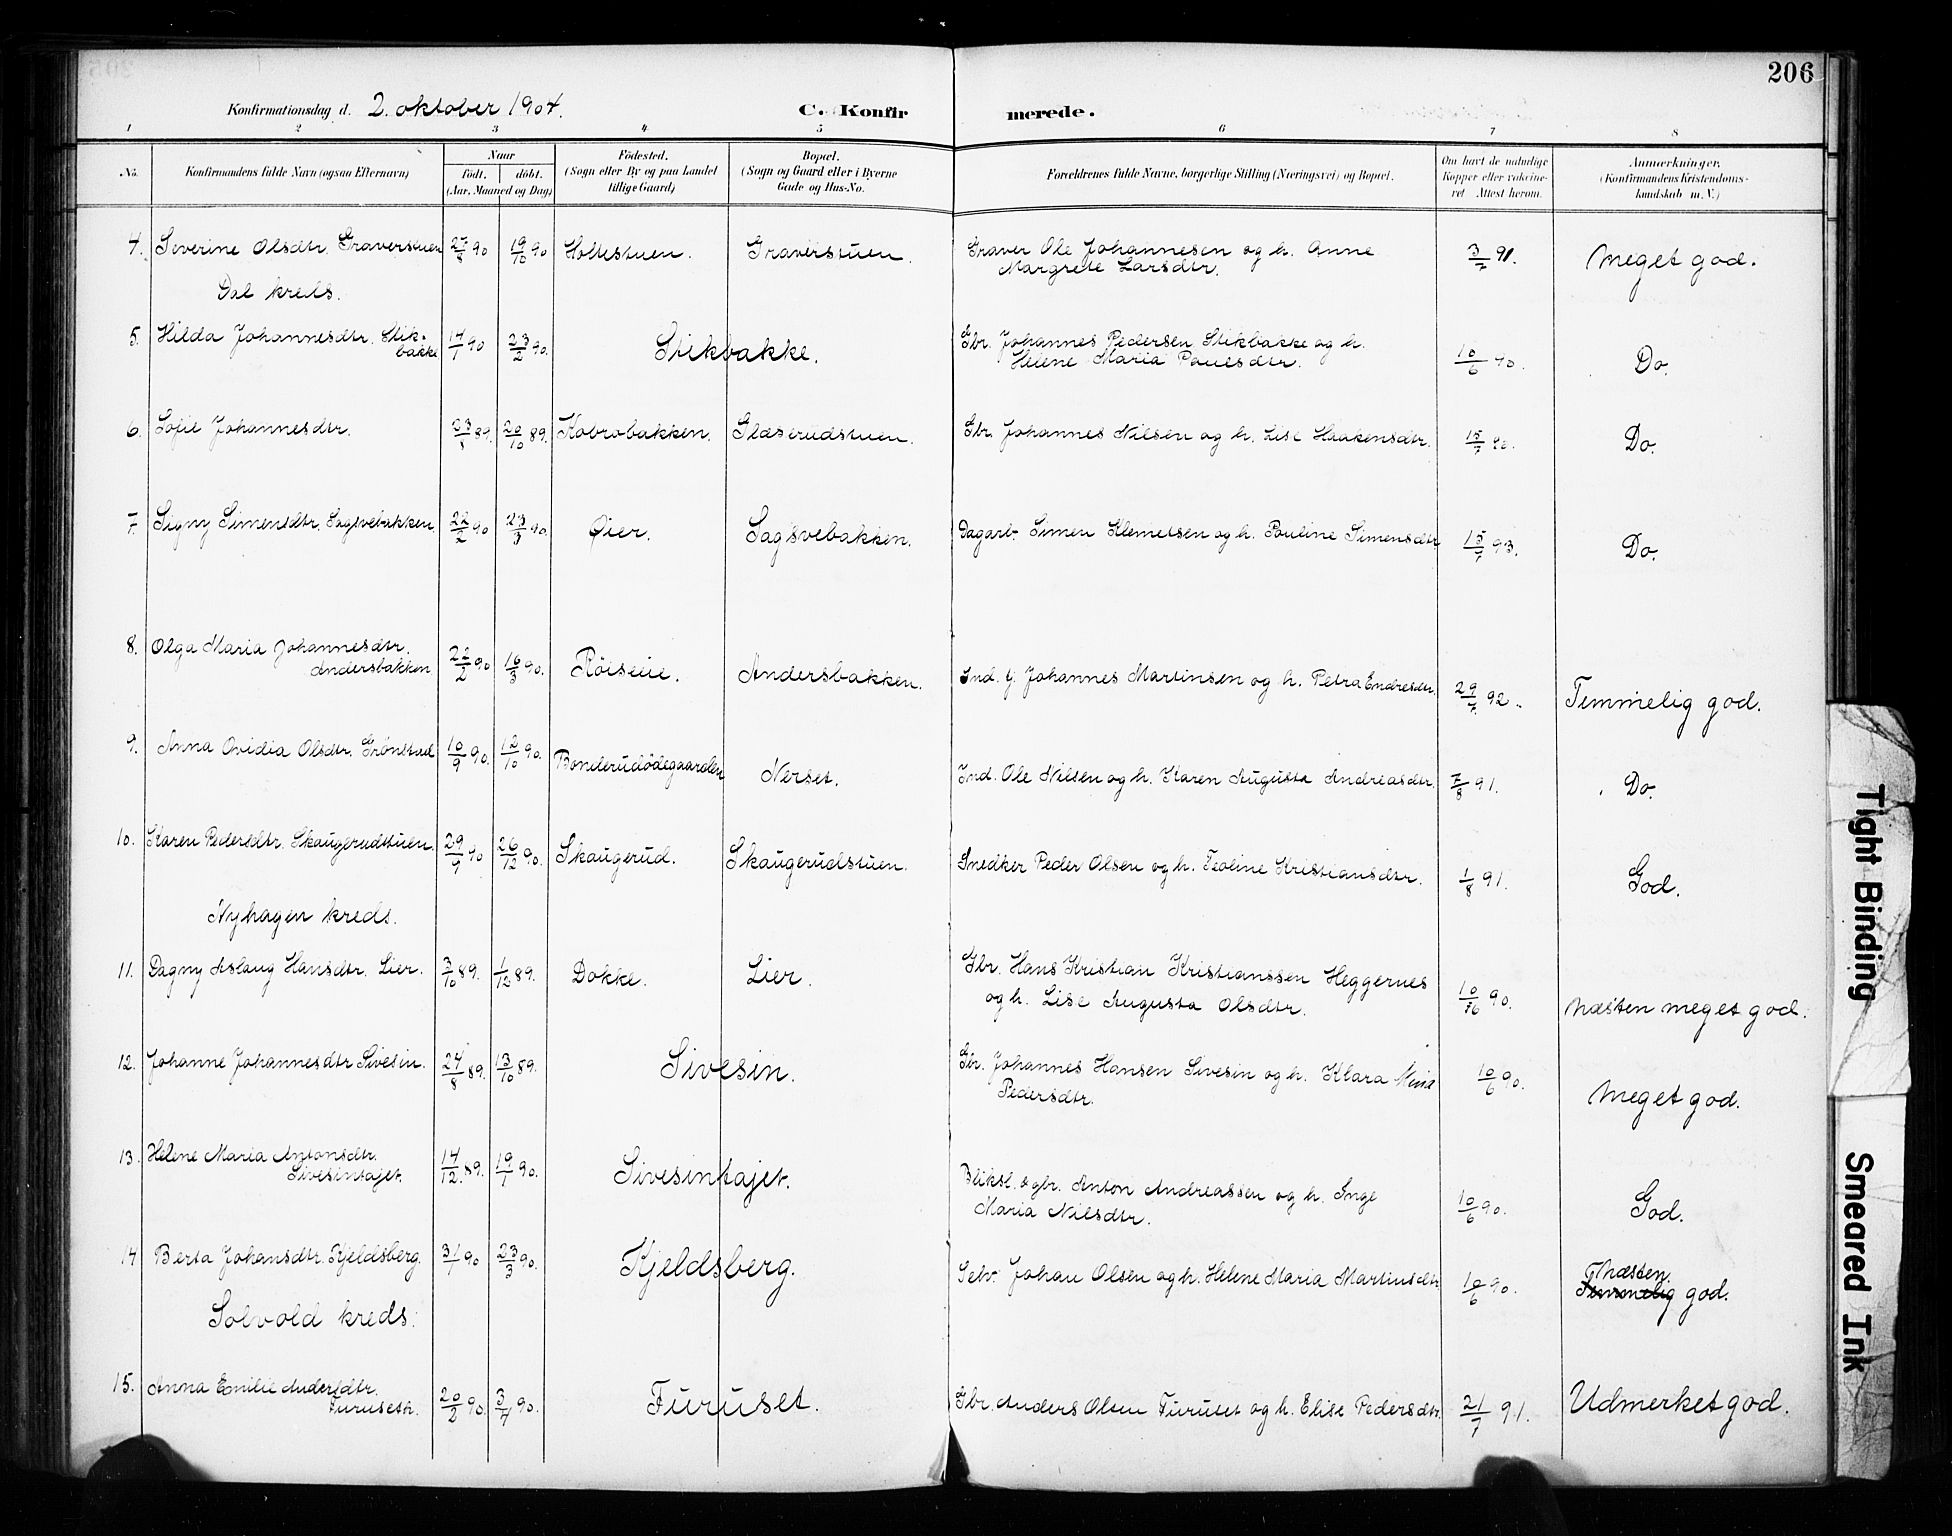 206
Konfirmationsdag d. 2. oktober 1904. C. Konfirmerede.
1 2 3 4 5 6 7 8
No. Konfirmandens fulde Navn (ogsaa Efternavn) Naar født. døbt. (Aar, Maaned og Dag) Fødested. (Sogn eller By og paa Landet tillige Gaard) Bopæl. (Sogn og Gaard eller i Byerne Gade og Hus-No. Forældrenes fulde Navne, borgerlige Stilling (Næringsvei) og Bopæl. Om havt de naturlige Kopper eller vakcineret. Attest herom. Anmærkninger. (Konfirmandens Kristendomskundskab m.V.)
4. Severine Olsdtr. Graverstuen 27/8 90 19/10 90 Holtestuen. Graverstuen. Graver Ole Johannesen og h. Anne Margrete Larsdtr. 3/7 91. Meget god.
Dal kreds.
5. Hilda Johannesdtr. Stikbakke 14/1 90 23/2 90. Stikbakke. Gbr. Johannes Pedersen Stikbakke og h. Helene Maria Paulsdtr. 10/6 90. Do.
6. Sofie Johannesdtr. 23/8 89. 20/10 89. Kobrobakken. Glæserudstuen. Gbr. Johannes Nilsen og h. Lise Haakensdtr. 15/7 90. Do.
7. Signy Simensdtr. Sagsvebakken. 22/2 90 23/3 90. Øier. Sagsvebakken. Dagarb. Simen Klemetsen og h. Pauline Simensdtr 15/7 93. Do.
8. Olga Maria Johannesdtr. Andersbakken 22/2 90 16/3 90. Röiseie. Andersbakken. Ind. f. Johannes Martinsen og h. Petra Endresdtr. 29/7 92. Temmelig god.
9. Anna Ovidia Olsdtr. Grönstad 10/9 90. 12/10 90. Bonderudödegaarden Nerset. Ind. Ole Nilsen og h. Karen Augusta Andreasdtr. 7/8 91. Do.
10. Karen Pedersdtr. Skaugerudstuen. 29/9 90 26/12 90. Skaugerud. Skaugerudstuen. Snedker Peder Olsen og h. Teoline Kristiansdtr. 1/8 91. God.
Nyhagen kreds.
11. Dagny Aslaug Hansdtr. Lier. 3/10 89. 1/12 89. Dokke. Lier. Gbr. Hans Kristian Kristianssen Heggernes og h. Lise Augusta Olsdtr. 10/6 90. Næsten meget god.
12. Johanne Johannesdtr Sivesin. 24/8 89. 13/10 89. Sivesin. Gbr. Johannes Hansen Sivesin og h. Klara Pedersdtr. 10/6 90. Meget god.
13. Helene Maria Antonsdtr. Sivesintajet. 14/12 89. 19/1 90. Sivesintajet. Bliksl. og br. Anton Andreassen og h. Inge Maria Nilsdtr. 10/6 90. God.
14 Berta Johansdtr. Kjeldsberg. 31/1 90 23/3 90. Kjeldsberg. Selv. Johan Olsen og h. Helene Maria Martinsdtr 10/6 90. Næsten Temmelig god.
Solvold kreds.
15. Anna Emilie Andersdtr. Furuseth. 20/2 90. 3/4 90. Furuset. Gbr. Anders Olsen Furuset og h. Elise Pedersdtr. 21/7 91. Udmerket god.
Tight Binding
Smeared Ink